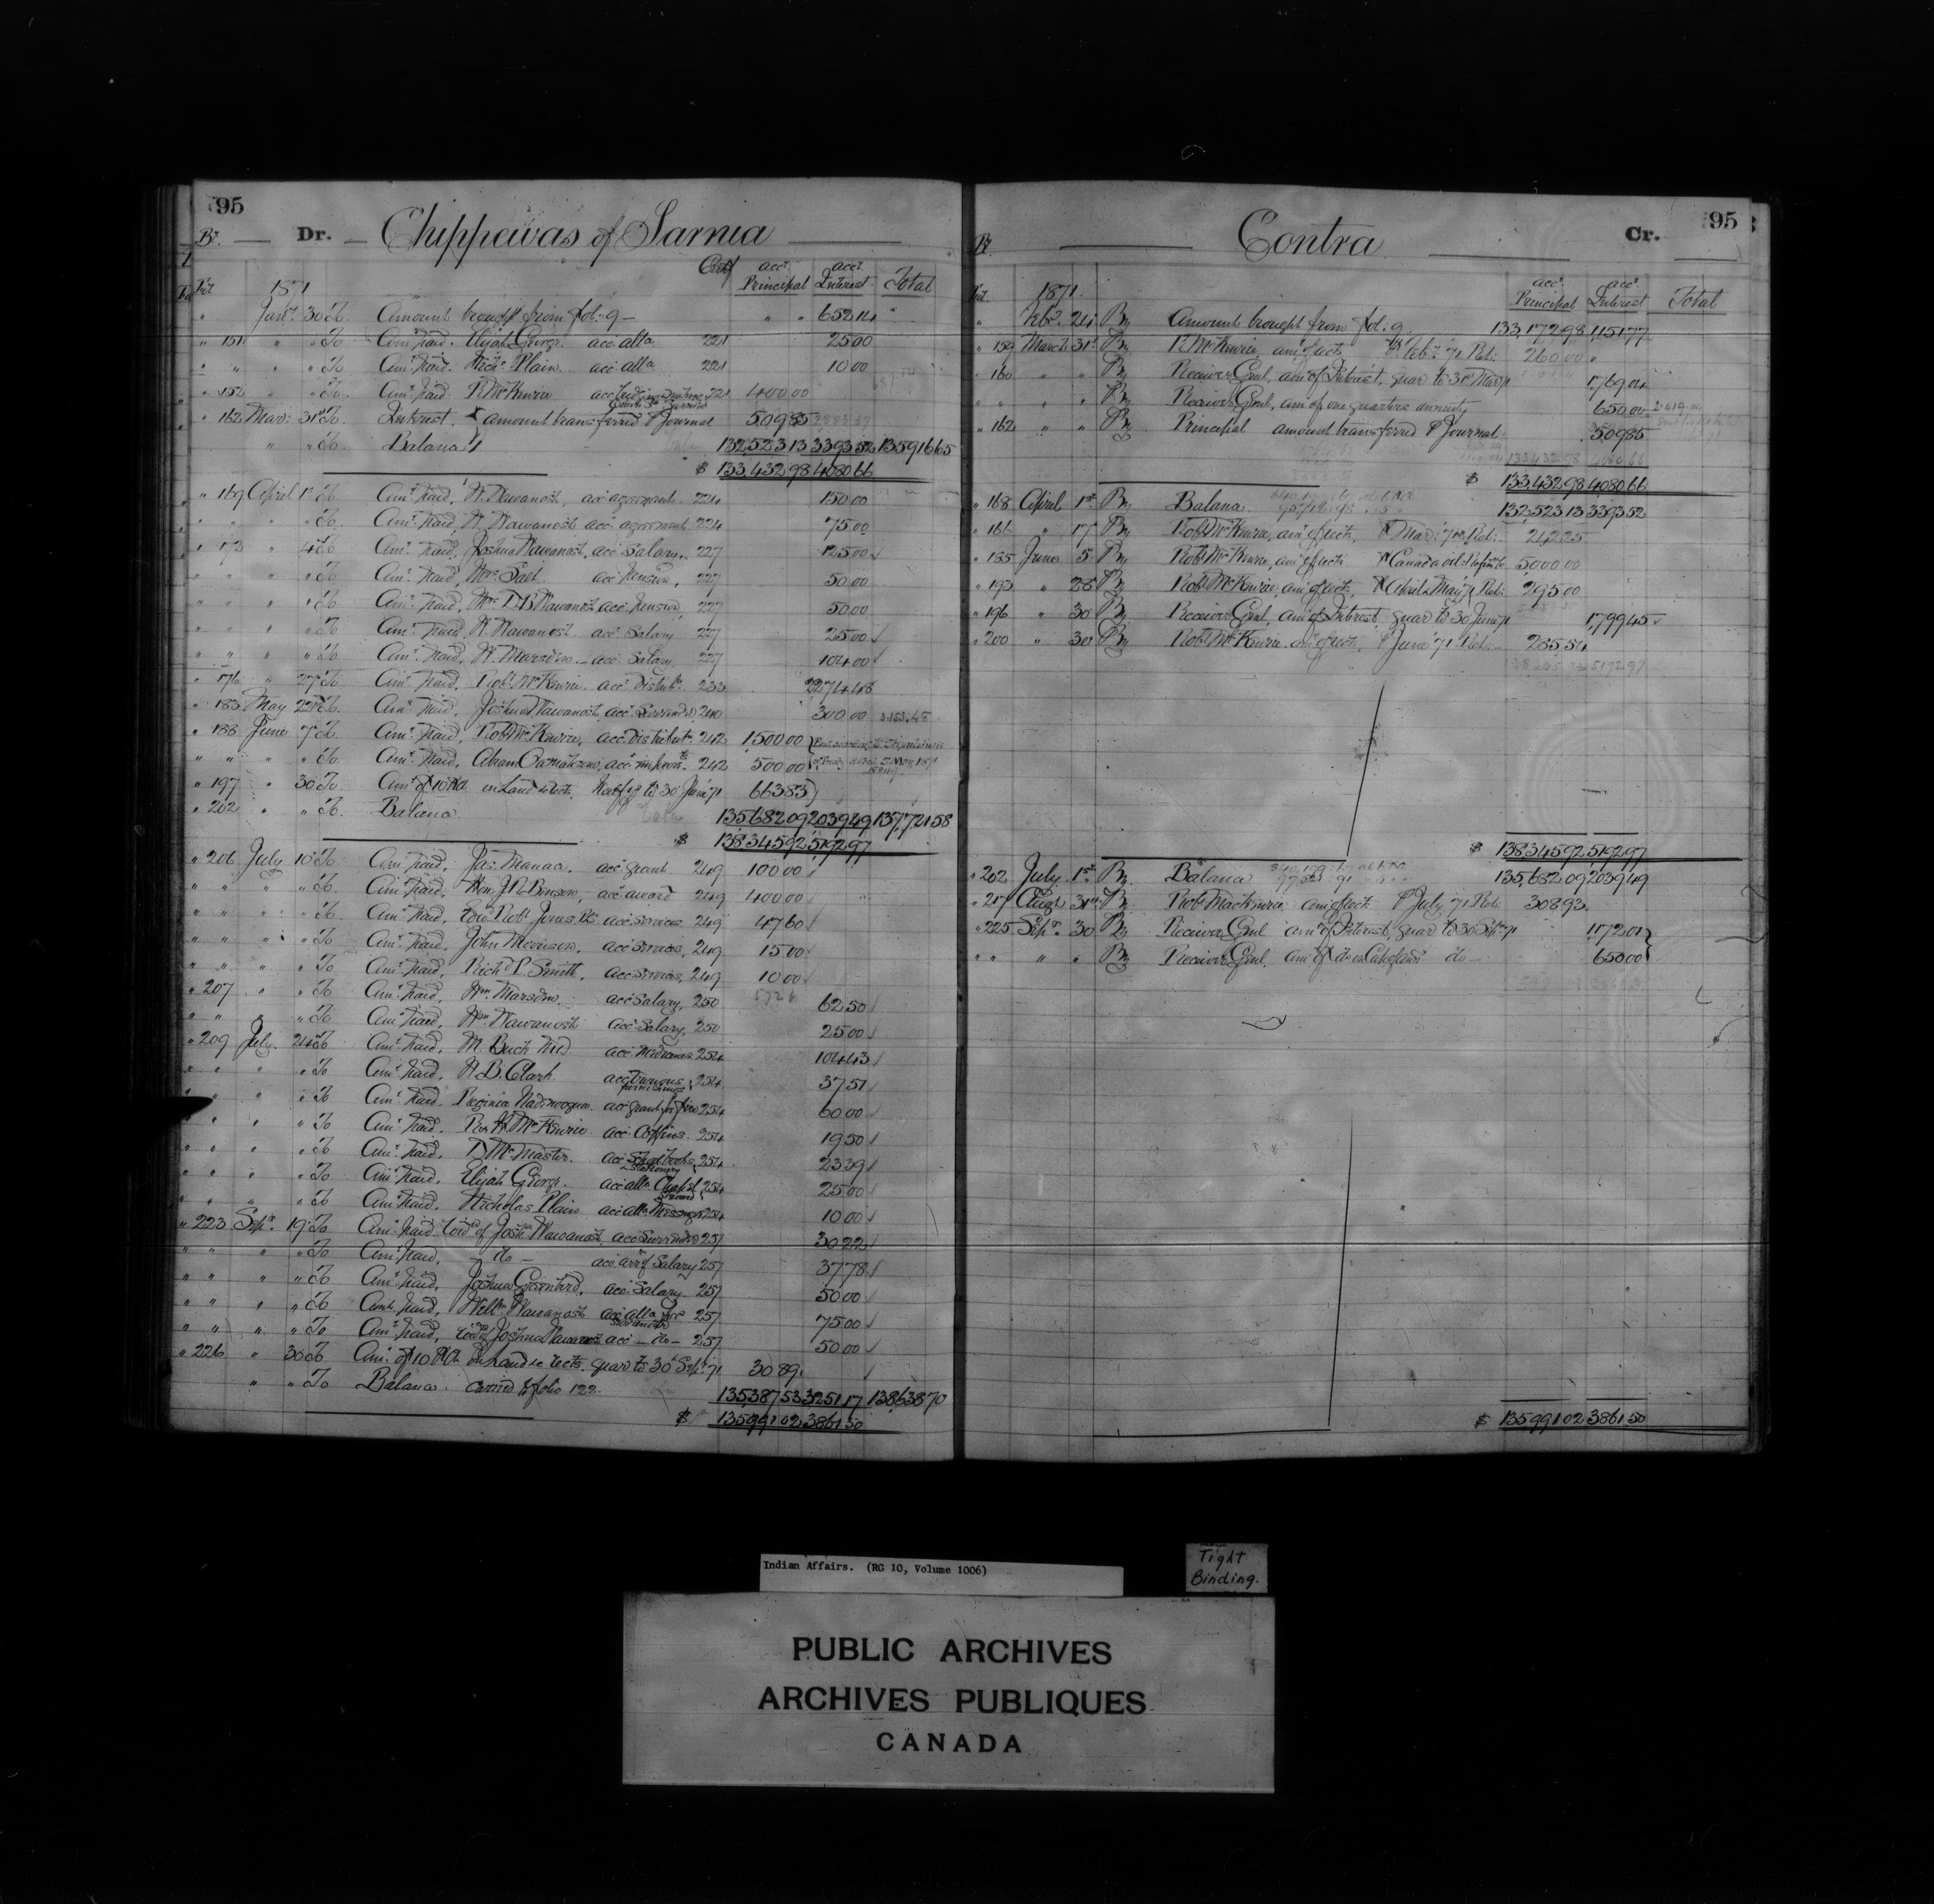 95
Dr. Chippewas of Sarnia
Certf. acct. Principal acct. Interest Total
1871
Jany. 30 To Amount brought from fol: 9 - 652 14
" 151 " " To Amt. paid. Elijah George. acc: alla. 221 25 00
" " " " To Amt. paid. Nichs. Plain. acc: alla 221 10 00
" 152 " " To Amt. paid R. McKenzie 221 400 00
" 162 Mar: 31st To Interest. amount transferred Journal 509 85
" " To Balance 132,523 13 3393 52 135916 65
$ 133,432 98 4080 66
" 169 April 1st To Amt. paid, W. Wawanosh, acc: agreement 224 150 00
" " " " To Amt. paid, W. Wawanosh acc: agreement 224 75 00
" 173 " 4th To Amt. paid, Joshua Wawanosh, acc: Salary, 227 125 00
" " " " To Amt. paid, Mrs. Salt acc: Pension, 227 50 00
" " " " To Amt. paid, Mrs. Wawanosh acc: Pension, 227 50 00
" " " " To Amt. paid, W. Wawanosh acc: Salary 227 25 00
" " " " To Amt. paid, W. Marsden acc: Salary, 227 104 00
" 176 " 27th To Amt. paid, Robt. McKenzie acc: Distributn. 233 2274 48
" 183 May 22nd To Amt. paid, Joshua Wawanosh, acc: Surrender 240 300 00 3153.48
" 188 June 7th To Amt. paid, Robt. McKenzie, acc: Distributn. 242 1,500 00
" " " " To Amt. paid, acc: 242 500 00
" 197 " 30 To Amt. of 10 on Land Collects, half yr to 30 June 71 663 83
" 202 " " To Balance 135682 09 2039 49 137,721 58
$ 138345 92 5192 97
" 206 July 10th To Amt. paid, Jas. Manace. acc: grant. 249 100 00
" " " " To Amt. paid, Hon. Benson, acc: award 249 400 00
" " " " To Amt. paid, Jones acc: services 249 47 60
" " " " To Amt. paid, John Morrison, acc: services, 249 15 00
" " " " To Amt. paid, Richd. P. Smith, acc: services, 249 10 00
" 207 " " To Amt. paid, Wm. Marsden. acc: Salary, 250 62 50
" " " " To Amt. paid, Wm. Wawanosh acc: Salary, 250 25 00
" 209 July 24th To Amt. paid, M. Buck acc: Medicines 254 104 43
" " " " To Amt. paid, B. Clark. acc: various furnishings 254 37 51
" " " " To Amt. paid. acc: grant 254 60 00
" " " " To Amt. paid. McKenzie acc: Coffins. 254 19 50
" " " " To Amt. paid. D. McMaster. acc: School books & Stationery 254 23 39
" " " " To Amt. paid. Elijah George. acc: alla Chapel Steward 254 25 00
" " " " To Amt. paid, Nicholas Plain acc: alla Messenger 254 10 00
" 223 Sepr. 19th To Amt. paid of Josha. Wawanosh, acc: Surrender 257 30 22
" " " " To Amt. paid, - do - acc: of Salary 257 37 78
" " " " To Amt. paid, Joshua Greenbird, acc: Salary 257 50 00
" " " " To Amt. paid, Willm. Wawanosh acc: alla 257 75 00
" " " " To Amt. paid, Joshua Wawanosh acc: - do - 257 50 00
" 226 " 30th To Amt. of 10 on Land Collects. quar to 30th Sept. 71 30 89
" " To Balance carried to folio 122 135,387 53 3251 17 138,638 70
$ 135,991 02 3861 50
95
Contra Cr.
1871. acct. Principal acct. Interest Total
" Feby. 24 By Amount brought from fol: 9. 133,172 98 1,151 77
" 159 March 31st By R. McKenzie, amt. of collects Feby. 71 Ret: 260 00
" 160 " " By Receiver Genl, amt. of Interest, quar to 31st Mar 71 1,769 04
" " " " By Receiver Genl, amt. of one quarters annuity 650 00
" 162 " " By Principal amount transferred Journal 509 85
$ 133,432 98 4080 66
" 168 April 1st By Balance 132,523 13 3393 52
" 166 " 17th By Robt. McKenzie, amt. of collects, Mar: 71 Ret: 242 25
" 185 June 5 By Robt. McKenzie, amt. of collects Canada oil 5000 00
" 193 " 28th By Robt. McKenzie, amt. of collects, April & May 71 Ret: 295 00
" 196 " 30 By Receiver Genl, amt. of Interest, quar to 30 June 71 1,799 45
" 200 " 30 By Robt. McKenzie. amt. of collects, June 71 Ret: 285 54
$ 138345 92 5192 97
" 202 July 1st By Balance 135,682 09 2039 49
" 217 Augt. 31st By Robt. MacKenzie amt. of collects July 71 Ret: 308 93
" 225 Sepr. 30 By Receiver Genl amt. of Interest, quar to 30 Sepr. 71 1,172 01
" " " " By Receiver Genl. amt. of do - 650 00
$ 135991 02 3861 50
Indian Affairs. (RG 10, Volume 1006)
Tight
Binding.
PUBLIC ARCHIVES
ARCHIVES PUBLIQUES
CANADA